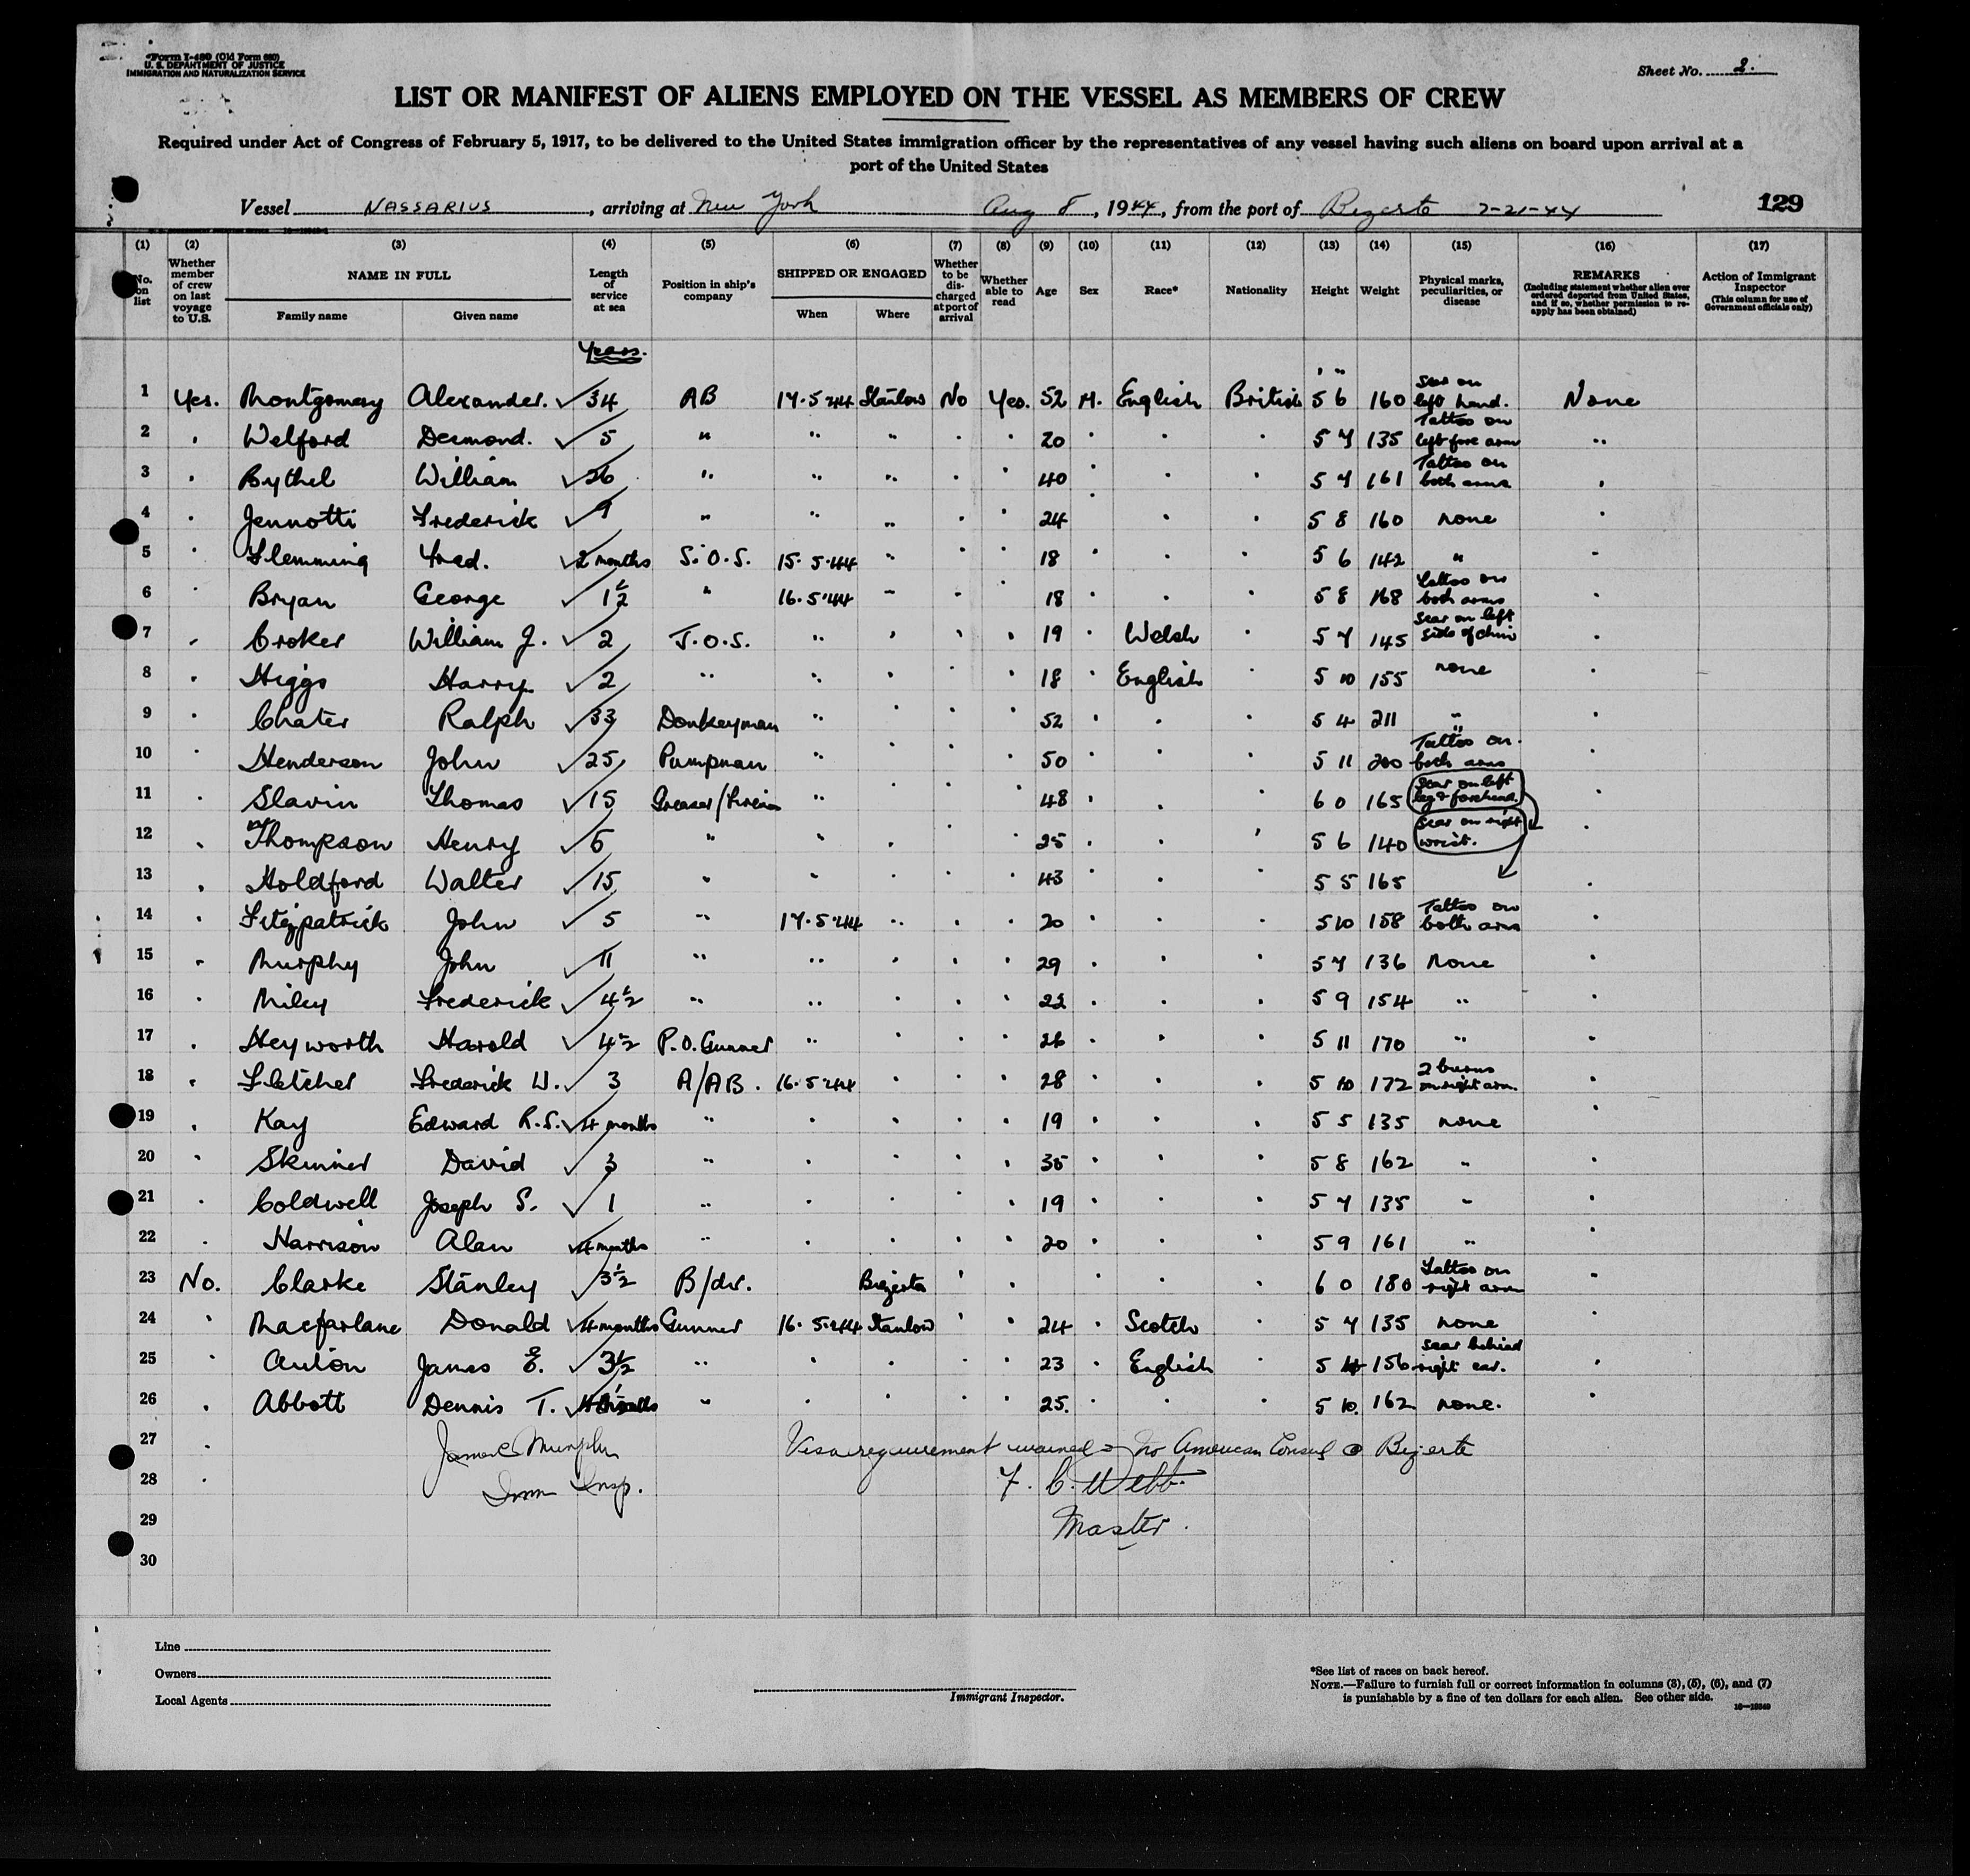 Form I-480 (Old Form 680)
U. S. DEPARTMENT OF JUSTICE
IMMIGRATION AND NATURALIZATION SERVICE
Sheet No. 2.
LIST OR MANIFEST OF ALIENS EMPLOYED ON THE VESSEL AS MEMBERS OF CREW
Required under Act of Congress of February 5, 1917, to be delivered to the United States immigration officer by the representatives of any vessel having such aliens on board upon arrival at a
port of the United States
Vessel NASSARIUS, arriving at New York Aug 8, 1944, from the port of Bizerte 7-21-44 129
(1) (2) (3) (4) (5) (6) (7) (8) (9) (10) (11) (12) (13) (14) (15) (16) (17)
No. on list Whether member of crew on last voyage to U.S. NAME IN FULL Family name Given name Length of service at sea Position in ship's company SHIPPED OR ENGAGED When Where Whether to be discharged at port of arrival Whether able to read Age Sex Race* Nationality Height Weight Physical marks, peculiarities, or disease REMARKS (Including statement whether alien ever ordered deported from United States, and if so, whether permission to reapply has been obtained) Action of Immigrant Inspector (This column for use of Government officials only)
Years.
1 Yes. Montgomery Alexander. ✓ 34 AB 17.5.44 Stanlow No Yes. 52 M. English British 5 6 160 Scar on left hand. None
2 " Welford Desmond. ✓ 5 " " " " " 20 " " " 5 7 135 Tattoo on left fore arm "
3 " Bythel William ✓ 26 " " " " " 40 " " " 5 7 161 Tattoo on both arms "
4 " Jennotti Frederick ✓ 9 " " " " " 24 " " " 5 8 160 none "
5 " Flemming Fred. ✓ 2 months S.O.S. 15.5.44 " " " 18 " " " 5 6 142 " "
6 " Bryan George ✓ 1½ " 16.5.44 " " " 18 " " " 5 8 168 Tattoo on both arms "
7 " Croker William J. ✓ 2 J.O.S. " " " " 19 " Welsh " 5 7 145 Scar on left side of chin "
8 " Higgs Harry ✓ 2 " " " " " 18 " English " 5 10 155 none "
9 " Chater Ralph ✓ 33 Donkeyman " " " " 52 " " " 5 4 211 " "
10 " Henderson John ✓ 25 Pumpman " " " " 50 " " " 5 11 200 Tattoo on both arms "
11 " Slavin Thomas ✓ 15 Greaser/Fireman " " " " 48 " " " 6 0 165 Scar on left leg & forehead.
12 " Thompson Henry ✓ 6 " " " " " 25 " " " 5 6 140 Scar on right wrist. "
13 " Holdford Walter ✓ 15 " " " " " 43 " " " 5 5 165 "
14 " Fitzpatrick John ✓ 5 " 17.5.44 " " " 20 " " " 5 10 158 Tattoo on both arms "
15 " Murphy John ✓ 11 " " " " " 29 " " " 5 7 136 None "
16 " Miley Frederick ✓ 4½ " " " " " 22 " " " 5 9 154 " "
17 " Heyworth Harold ✓ 4½ P.O. Gunner " " " " 26 " " " 5 11 170 " "
18 " Fletcher Frederick W. ✓ 3 A/AB. 16.5.44 " " " 28 " " " 5 10 172 2 burns on right arm. "
19 " Kay Edward R.S. ✓ 4 months " " " " " 19 " " " 5 5 135 none "
20 " Skinner David ✓ 3 " " " " " 35 " " " 5 8 162 " "
21 " Coldwell Joseph S. ✓ 1 " " " " " 19 " " " 5 7 135 " "
22 " Harrison Alan ✓ 4 months " " " " " 20 " " " 5 9 161 " "
23 No. Clarke Stanley ✓ 3½ B/dr. Bizerta " " " " " 6 0 180 Tattoo on right arm "
24 " Macfarlane Donald ✓ 4 months Gunner 16.5.44 Stanlow " " 24 " Scotch " 5 7 135 none
25 " James E. ✓ 3½ " " " " " 23 " English " 5 4 156 scar behind right ear. "
26 " Abbott Dennis T. ✓ " " " " " 25. " " " 5 10. 162 none. "
27 " James C Murphy Visa requirement waived = No American Consul @ Bizerte
28 " Imm Insp. F. C. Webb.
29 Master.
30
Line
Owners
Local Agents
Immigrant Inspector.
*See list of races on back hereof.
NOTE.—Failure to furnish full or correct information in columns (3), (5), (6), and (7)
is punishable by a fine of ten dollars for each alien. See other side.